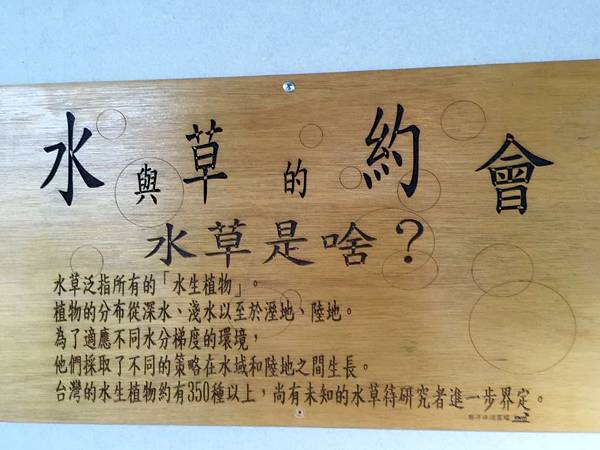 水與草的約會
水草是啥？
水草泛指所有的「水生植物」。
植物的分布從深水、淺水以至於溼地、陸地。
為了適應不同水分梯度的環境，
他們採取了不同的策略在水域和陸地之間生長。
台灣的水生植物約有350種以上，尚有未知的水草待研究者進一步界定。